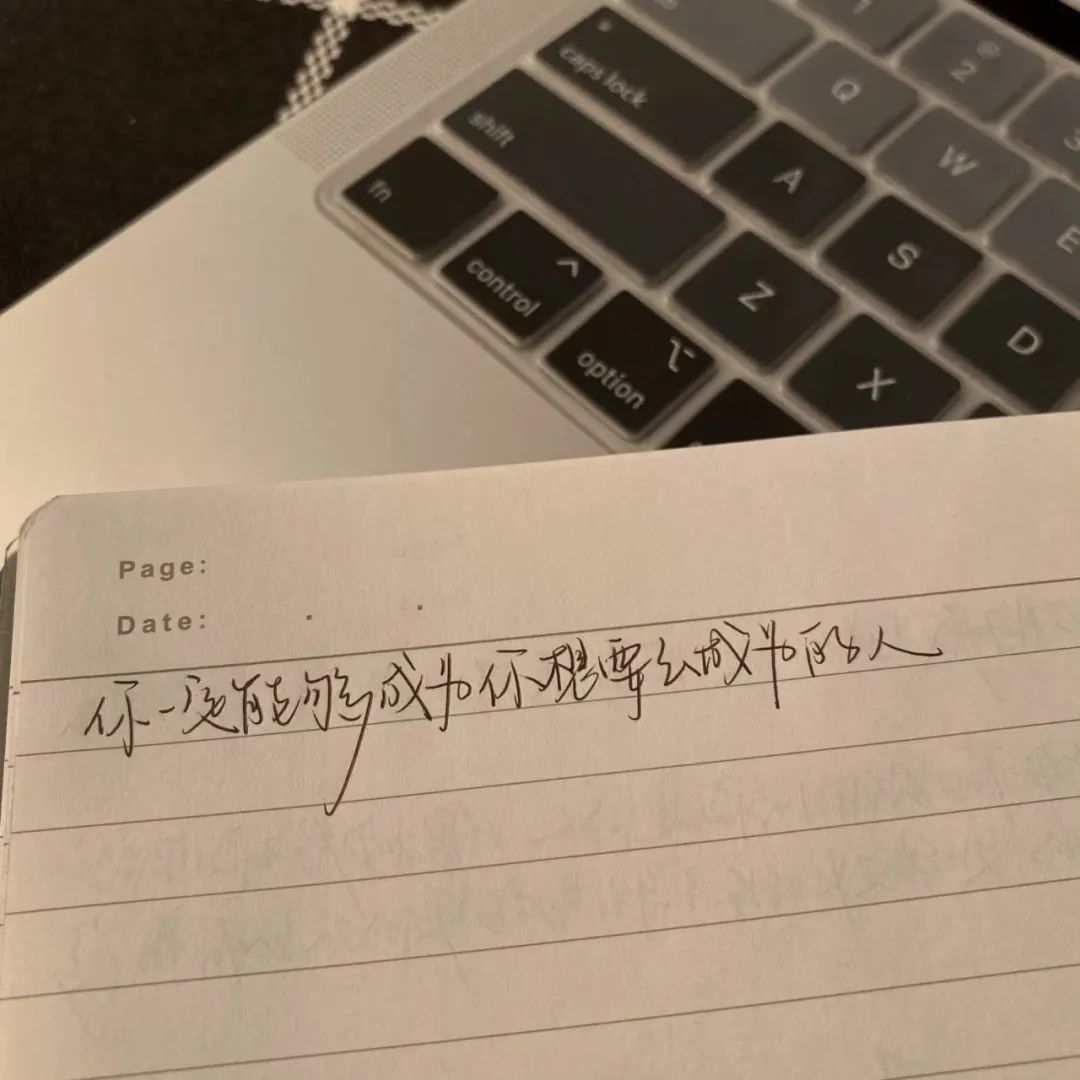 1
@
2
3
Q
W
E
caps lock
A
S
D
shift
Z
X
fn
control
option
Page:
Date:
你一定能够成为你想要么成为的人